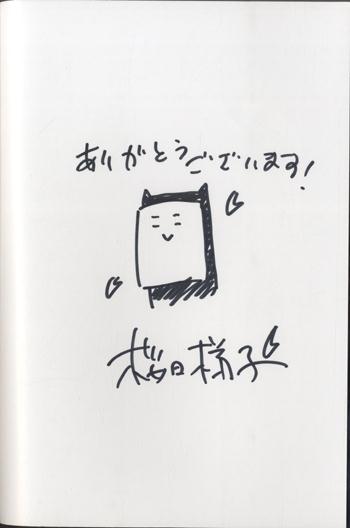 ありがとうございます!
桜日梯子